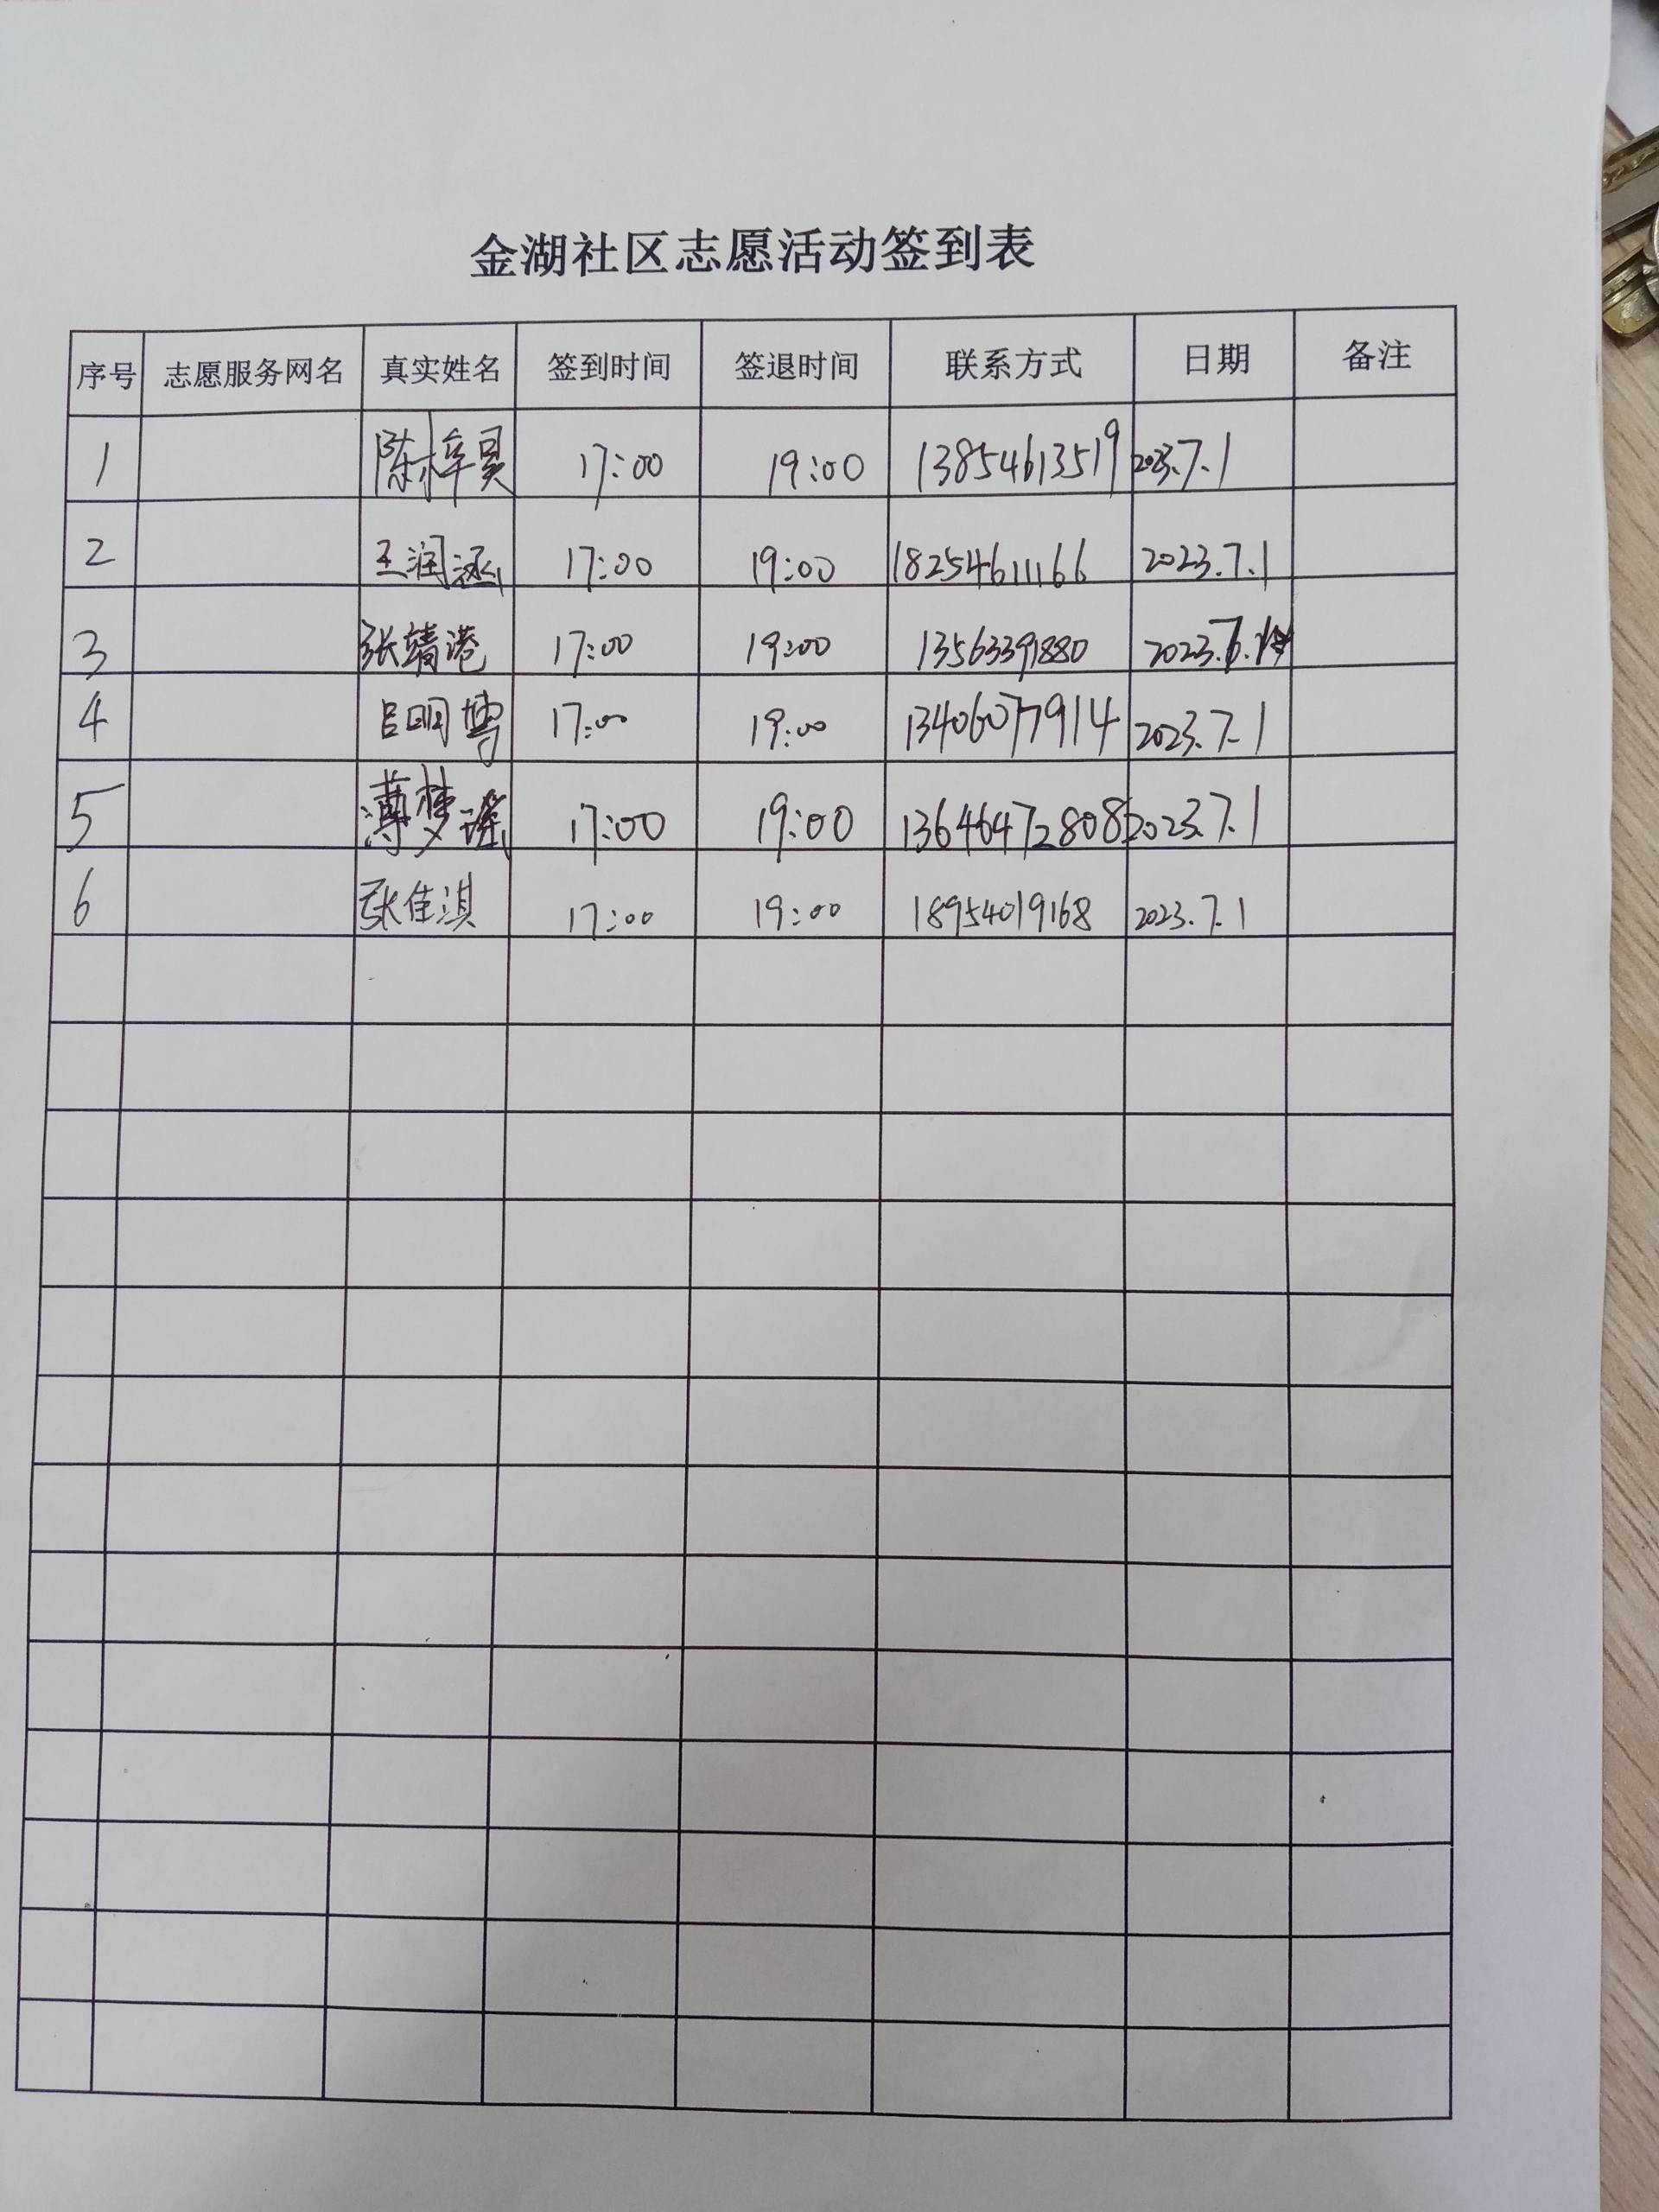 金湖社区志愿活动签到表
序号 志愿服务网名 真实姓名 签到时间 签退时间 联系方式 日期 备注
1 陈梓昊 17:00 19:00 13854613519 2023.7.1
2 王润涵 17:00 19:00 18254611166 2023.7.1
3 张靖港 17:00 19:00 13563391880 2023.7.1
4 吕明骞 17:00 19:00 13406077914 2023.7.1
5 薄梦瑶 17:00 19:00 13646472808 2023.7.1
6 张佳淇 17:00 19:00 18954019168 2023.7.1